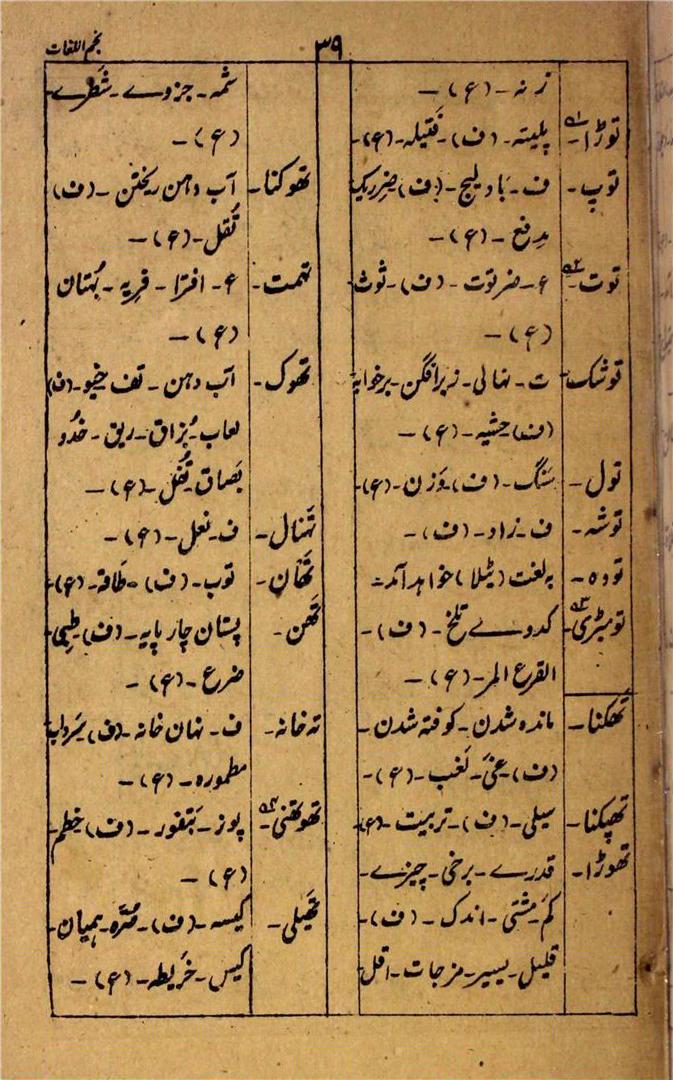 نجم اللغات
۳۹
زنہ - (ع) -
توڑا - پلیتہ - (ف) - فتیلہ - (ع) -
توپ - ف - بادلیج - (ف)
مدفع - (ع) -
توت - ع - توت - (ف) - توث
(ع) -
توشک - ت - نہالی - زیرافگن - برخوابہ
(ف) حشیہ - (ع) -
تول - سنگ - (ف) - وزن - (ع) -
توشہ - ف - زاد - (ف) -
تودہ - بہ لغت (ٹیلا) خواہد آمد -
تومبڑی - کدوے تلخ - (ف) -
القرع المر - (ع) -
تھکنا - ماندہ شدن - کوفتہ شدن -
(ف) عیَّ - لغب - (ع) -
تھپکنا - سیلی - (ف) - تربیت - (ع) -
تھوڑا - قدرے - برخی - چیزے -
کم - مشتی - اندک - (ف) -
قلیل - یسیر - مزجات - اقل
شمہ - جزوے - شطرے -
(ع) -
تھوکنا - آب دہن ریختن - (ف)
تُفل - (ع) -
تہمت - ع - افترا - فریہ - بُہتان
(ع) -
تھوک - آب دہن - تف خیو - (ف)
لعاب - بُزاق - ریق - خدُو
بصاق - تُفل - (ع) -
تہنال - ف - نعل - (ع) -
تھان - توب - (ف) - طاقۃ - (ع) -
تھن - پستان چارپایہ - (ف) طِبی -
ضرع - (ع) -
تہ خانہ - ف - نہان خانہ - (ف) سرداب
مطمورہ - (ع) -
تھوتھنی - پوز - بَتفوز - (ف) خطم -
(ع) -
تھیلی - کیسہ - (ف) - صُرّہ - ہمیان -
کیس - خریطہ - (ع) -